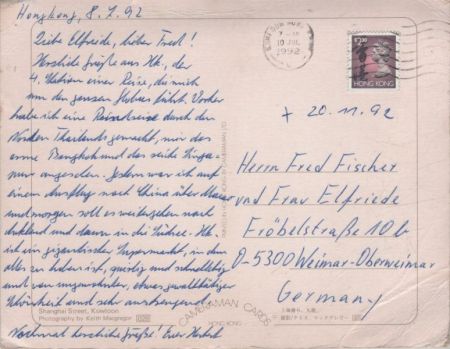 Hongkong, 8.7.92
Liebe Elfriede, lieber Fred!
Herzliche Grüße aus Hk., der
4. Station einer Reise, die mich
um den ganzen Globus führt. Vorher
habe ich eine durch den
Norden Thailands gemacht, mir das
arme Bangkok und das reiche Singa-
pur angesehen. Gestern war ich auf
einem Ausflug nach China über Macao
und morgen soll es weitergehen nach
und dann in die Südsee. Hk.
ist ein gigantischer Supermarkt, in dem
alles zu haben ist, quirlig und schnellebig
und von ungewohnter, etwas gewalttätiger
Schönheit und sehr anstrengend.
Nochmal herzliche Grüße! Euer
Shanghai Street, Kowloon
Photography by Keith Macgregor
CAMERAMAN CARDS
HONG KONG
10 JUL
1992
HONG KONG
+ 20.11.92
Herrn Fred Fischer
und Frau Elfriede
Fröbelstraße 10b
D-5300 Weimar-Oberweimar
Germany